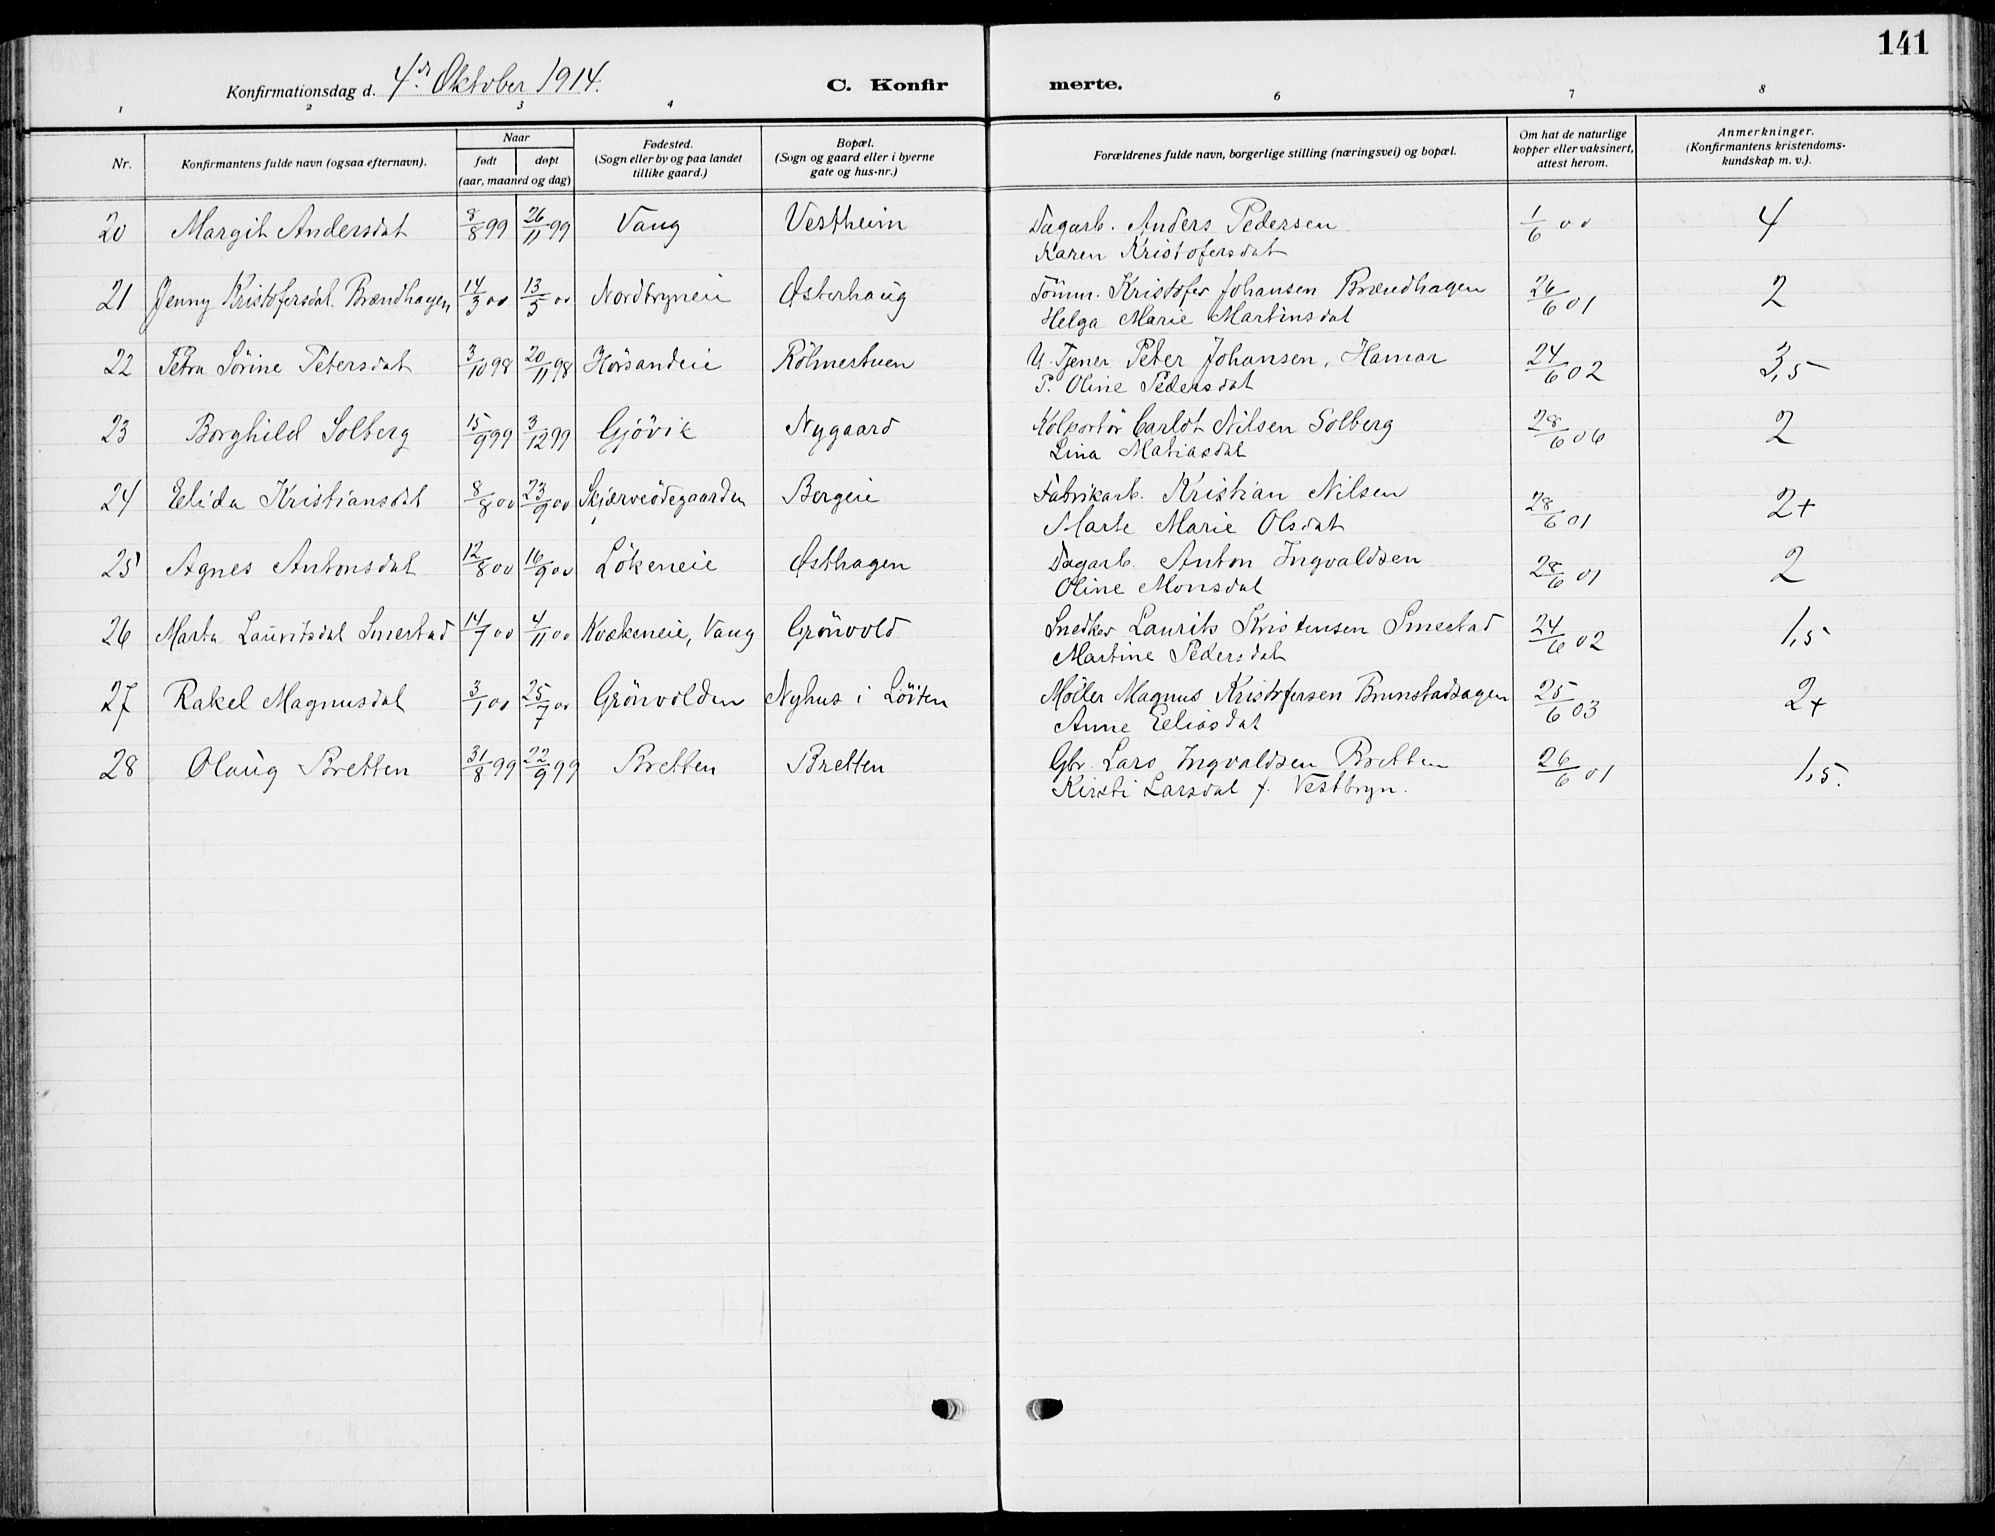 141
Konfirmationsdag d. 4de Oktober 1914. C. Konfir merte.
1 2 3 4 6 7 8
Nr.
Konfirmantens fulde navn (ogsaa efternavn).
Naar
født døpt
(aar, maaned og dag)
Fødested.
(Sogn eller by og paa landet
tillike gaard.)
Bopæl.
(Sogn og gaard eller i byerne
gate og hus-nr.)
Forældrenes fulde navn, borgerlige stilling (næringsvei) og bopæl.
Om hat de naturlige
kopper eller vaksinert,
attest herom.
Anmerkninger.
(Konfirmantens kristendoms-
kundskap m. v.).
20 Margit Andersdat 8/8 99 26/11 99 Vang Vestheim Dagarb. Anders Pedersen 1/6 00 4
Karen Kristofersdat
21 Jenny Kristofersdat. Brændhagen 14/3 00 13/5 00 Nordbryneie Østerhaug Tömm. Kristofer Johansen Brændhagen 26/6 01 2
Helga Marie Martinsdat
22 Petra Sörine Petersdat 3/10 98 20/11 98 Hörsandeie Rölmestuen U. Tjener Peter Johansen, Hamar 24/6 02 3,5
P. Oline Pedersdat
23 Borghild Solberg 15/9 99 3/12 99 Gjövik Nygaard Kolportör Carldt Nilsen Solberg 28/6 06 2
Lina Matiasdat
24 Elida Kristiansdat 8/8 00 23/9 00 Skjærveödegaarden Bergeie Fabrikarb. Kristian Nilsen 28/6 01 2+
Marte Marie Olsdat
25 Agnes Antonsdat 12/8 00 16/9 00 Lökeneie Østhagen Dagarb. Anton Ingvaldsen 28/6 01 2
Oline Monsdat
26 Marta Lauritsdat Smestad 14/7 00 4/11 00 Kvækeneie, Vang Grönvold Snedker Laurits Kristensen Smestad 24/6 02 1,5
Martine Pedersdat
27 Rakel Magnusdat 3/1 00 25/7 00 Grönvolden Nyhus i Löiten Möller Magnus Kristofersen Brunstadhagen 25/6 03 2+
Anne Eliasdat
28 Olaug Bretten 31/8 99 22/9 99 Bretten Bretten Gbr. Lars Ingvaldsen Bretten 26/6 01 1,5.
Kirsti Larsdat f. Vestbryn.